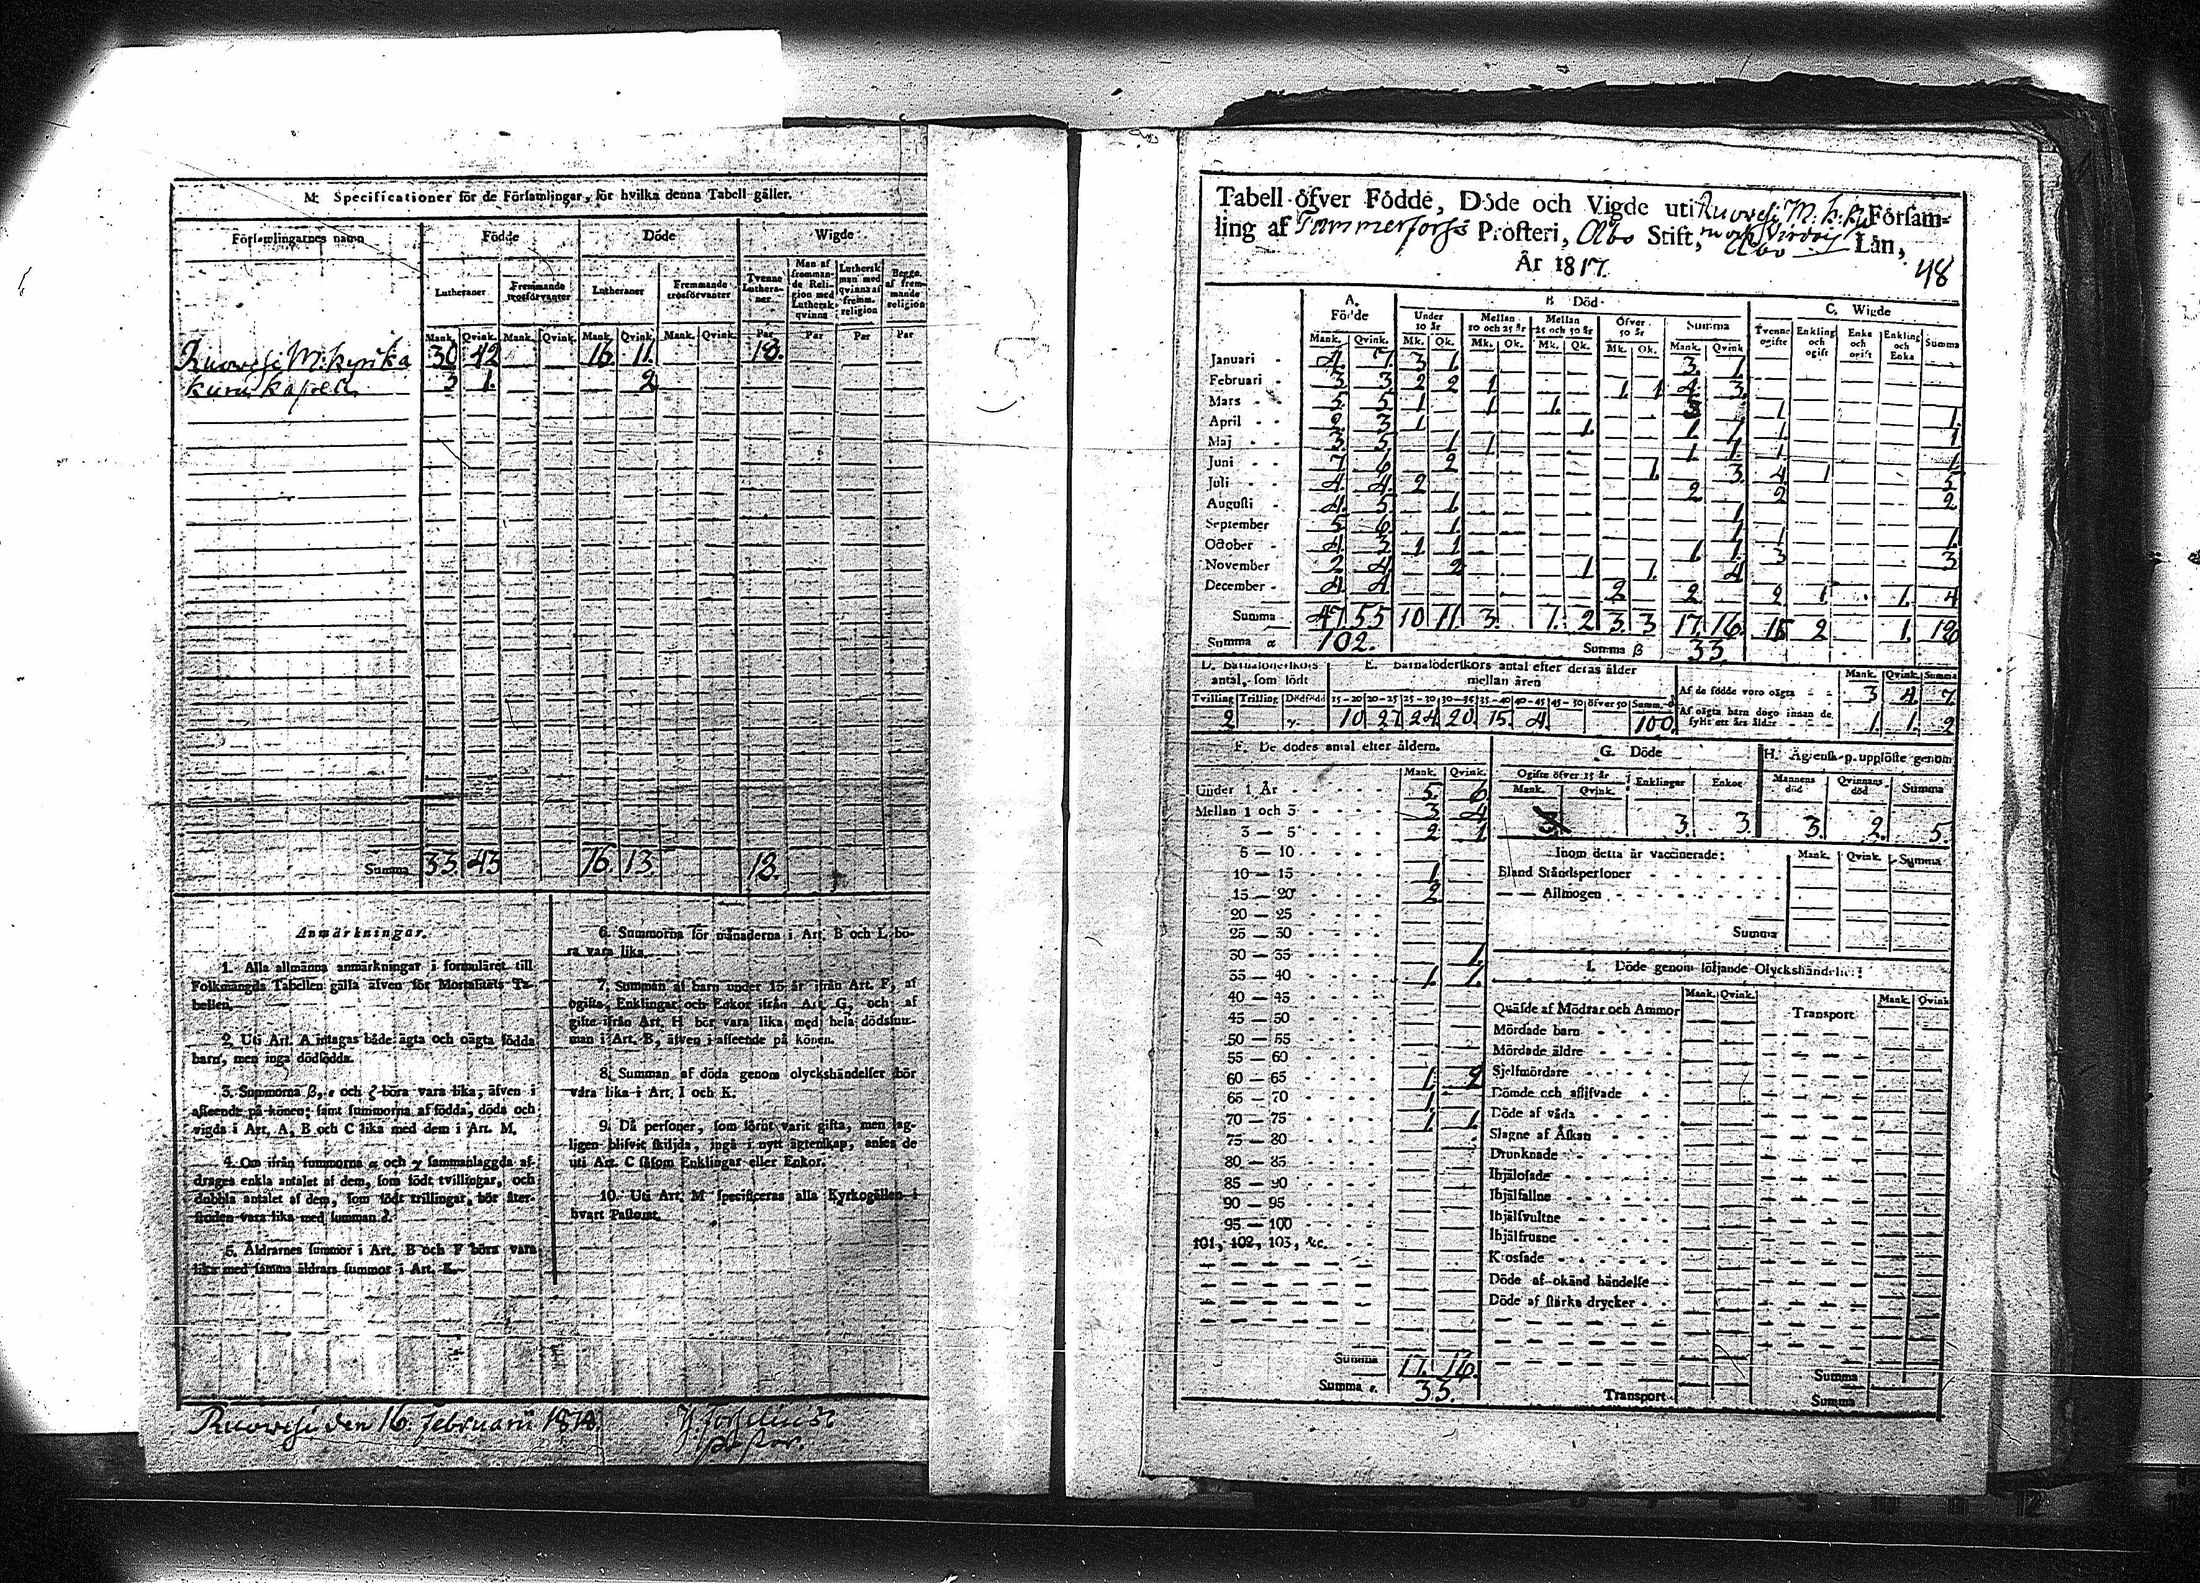 M. Specificationer för de Församlingar, för hvilka denna Tabell gäller.
Församlingarnes namn Födde Döde Wigde
Lutheraner Fremmande trosförvanter Lutheraner Fremmande trosförvanter Tvenne Lutheraner Man af fremmande Religion med Luthersk qvinna Luthersk man med qvinna af fremm. religion Begge af fremmande religion
Mank. Qvink. Mank. Qvink. Mank. Qvink. Mank. Qvink. Par Par Par Par
Ruovesi M: kyrka 30 42 16 11 13
Kuru kapell 3 1 2
Summa 33 43 16 13 13
Anmärkningar.
1. Alla allmänna anmärkningar i formuläret till
Folkmängds Tabellen gälla äfven för Mortalitäts Ta-
bellen.
2. Uti Art. A intagas både ägta och oägta födda
barn, men inga dödfödda.
3. Summorna β, ε och ζ böra vara lika, äfven i
afseende på könen; samt summorna af födda, döda och
vigda i Art. A, B och C lika med dem i Art. M.
4. Om ifrån summorna α och γ sammanlaggda af-
drages enkla antalet af dem, som födt tvillingar, och
dubbla antalet af dem, som födt trillingar, bör åter-
stoden vara lika med summan δ.
5. Åldrarnes summor i Art. B och F böra vara
lika med samma åldrars summor i Art. K.
6. Summorna för månaderna i Art. B och L bö-
ra vara lika.
7. Summan af barn under 15 år ifrån Art. F, af
ogifta, Enklingar och Enkor ifrån Art. G, och af
gifta ifrån Art. H bör vara lika med hela dödssum-
man i Art. B, äfven i afseende på könen.
8. Summan af döda genom olyckshändelser bör
vara lika i Art. I och K.
9. Då personer, som förut varit gifta, men lag-
ligen blifvit skiljda, ingå i nytt ägtenskap, anses de
uti Art. C såsom Enklingar eller Enkor.
10. Uti Art. M specificeras alla Kyrkogällen i
hvart Pastorat.
Ruovesi den 16. Februarii 1818.
Pastor.
Tabell öfver Födde, Döde och Vigde uti Ruovesi M: k: Församling
af Tammerfors Prosteri, Åbo Stift, Åbo Län,
År 1817.
48
A. Födde B Död C. Wigde
Under 10 år Mellan 10 och 25 år Mellan 25 och 50 år Öfver 50 år Summa Tvenne ogifte Enkling och ogift Enka och ogift Enkling och Enka Summa
Mank. Qvink. Mk. Qk. Mk. Qk. Mk. Qk. Mk. Qk. Mank. Qvink
Januari 4 7 3 1 3 1
Februari 3 3 2 2 1 1 1 4 3
Mars 5 5 1 1 1 3 1 1
April 2 3 1 1 1 1 1 1
Maj 3 5 1 1 1 1 1 1
Juni 7 6 2 1 3 4 1 5
Juli 4 4 2 2 2 2
Augusti 4 5 1 1
September 5 6 1 1 1 1
October 4 3 1 1 1 1 3 3
November 2 4 2 1 1 4
December 4 4 2 2 2 1 1 4
Summa 47 55 10 11 3 1 2 3 3 17 16 15 2 1
Summa α 102. Summa β 33
D. Barnaföderskors antal, som födt E. Barnaföderskors antal efter deras ålder mellan åren
Tvilling Trilling Dödfödd 15-20 20-25 25-30 30-35 35-40 40-45 45-50 öfver 50 Summa δ
2 γ 10 27 24 20 15 4 100
Mank. Qvink. Summa
Af de födde voro oägta 3 4 7
Af oägta barn dogo innan de fyllt ett års ålder 1 1 2
F. De dödes antal efter åldern.
Mank. Qvink.
Under 1 År 5 6
Mellan 1 och 3 3 4
3 — 5 2 1
5 — 10
10 — 15 1
15 — 20 2
20 — 25
25 — 30
30 — 35 1
35 — 40 1 1
40 — 45
45 — 50
50 — 55
55 — 60
60 — 65 1 2
65 — 70 1
70 — 75 1 1
75 — 80
80 — 85
85 — 90
90 — 95
95 — 100
101, 102, 103, &c.
Summa 17 16
Summa ε. 33.
G. Döde
Ogifte öfver 15 år Enklinger Enkor
Mank. Qvink.
3 3
H. Ägtensk-p upplöste genom
Mannens död Qvinnans död Summa
3 2 5
Inom detta år vaccinerade: Mank. Qvink. Summa
Bland Ståndspersoner
— — Allmogen
Summa
I. Döde genom följande Olyckshändelser:
Mank. Qvink. Mank. Qvink
Quäfde af Mödrar och Ammor Transport
Mördade barn
Mördade äldre
Sjelfmördare
Dömde och aflifvade
Döde af våda
Slagne af Åskan
Drunknade
Ihjälofade
Ihjälfallne
Ihjälsvultne
Ihjälfrusne
Krossade
Döde af okänd händelse
Döde af starka drycker
Transport
Summa
Summa